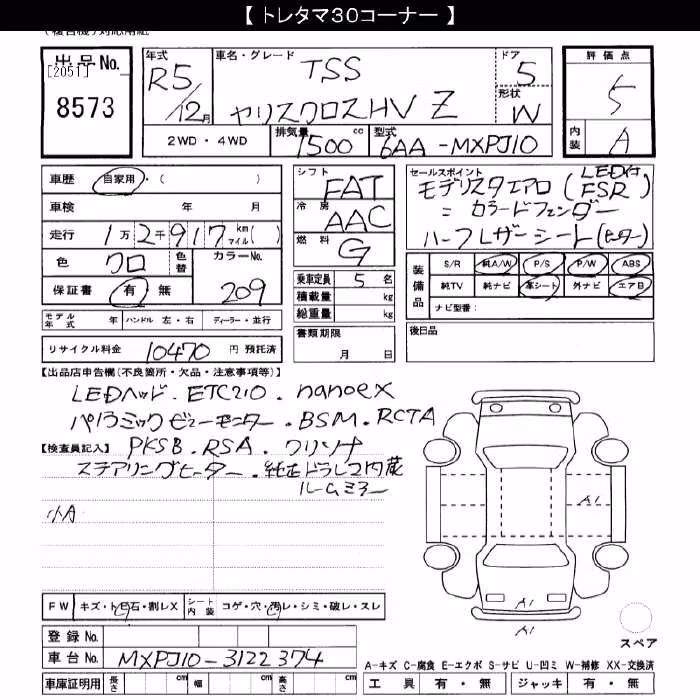 【 トレタマ30コーナー 】
出品No.
[2051]
8573
年式 R5/12月
車名・グレード TSS
ヤリスクロスHV Z
ドア 5
形状 W
評価点 5
内装 A
2WD・4WD
排気量 1500 cc
型式 6AA-MXPJ10
車歴 自家用・( )
車検 年 月
走行 1万2千917 km マイル( )
色 クロ 色替 カラーNo. 209
保証書 有 無
モデル年式 年 ハンドル 左・右 ディーラー・並行
リサイクル料金 10470 円 預託済
シフト FAT
冷房 AAC
燃料 G
乗車定員 5 名
積載量 kg
総重量 kg
書類期限
月 日
セールスポイント LED付
モデリスタエアロ(FSR)
= カラードフェンダー
ハーフレザーシート(ヒーター)
装備品 S/R 純A/W P/S P/W ABS
純TV 純ナビ 革シート 外ナビ エアB
ナビ型番:
後日品
【出品店申告欄(不良箇所・欠品・注意事項等)】
LEDヘッド.ETC2.0.nanoex
パノラミックビューモニター.BSM.RCTA
【検査員記入】 PKSB.RSA.クリソナ
ステアリングヒーター.純正ドラレコ内蔵
ルームミラー
小A
FW キズ・ト飛石・割レX シート内装 コゲ・穴・汚レ・シミ・破レ・スレ
A1
A1
A1
スペア
登録No.
車台No. MXPJ10-3122374
車庫証明用 長さ cm 幅 cm 高さ cm
A-キズ C-腐食 E-エクボ S-サビ U-凹ミ W-補修 XX-交換済
工具 有・無 ジャッキ 有・無